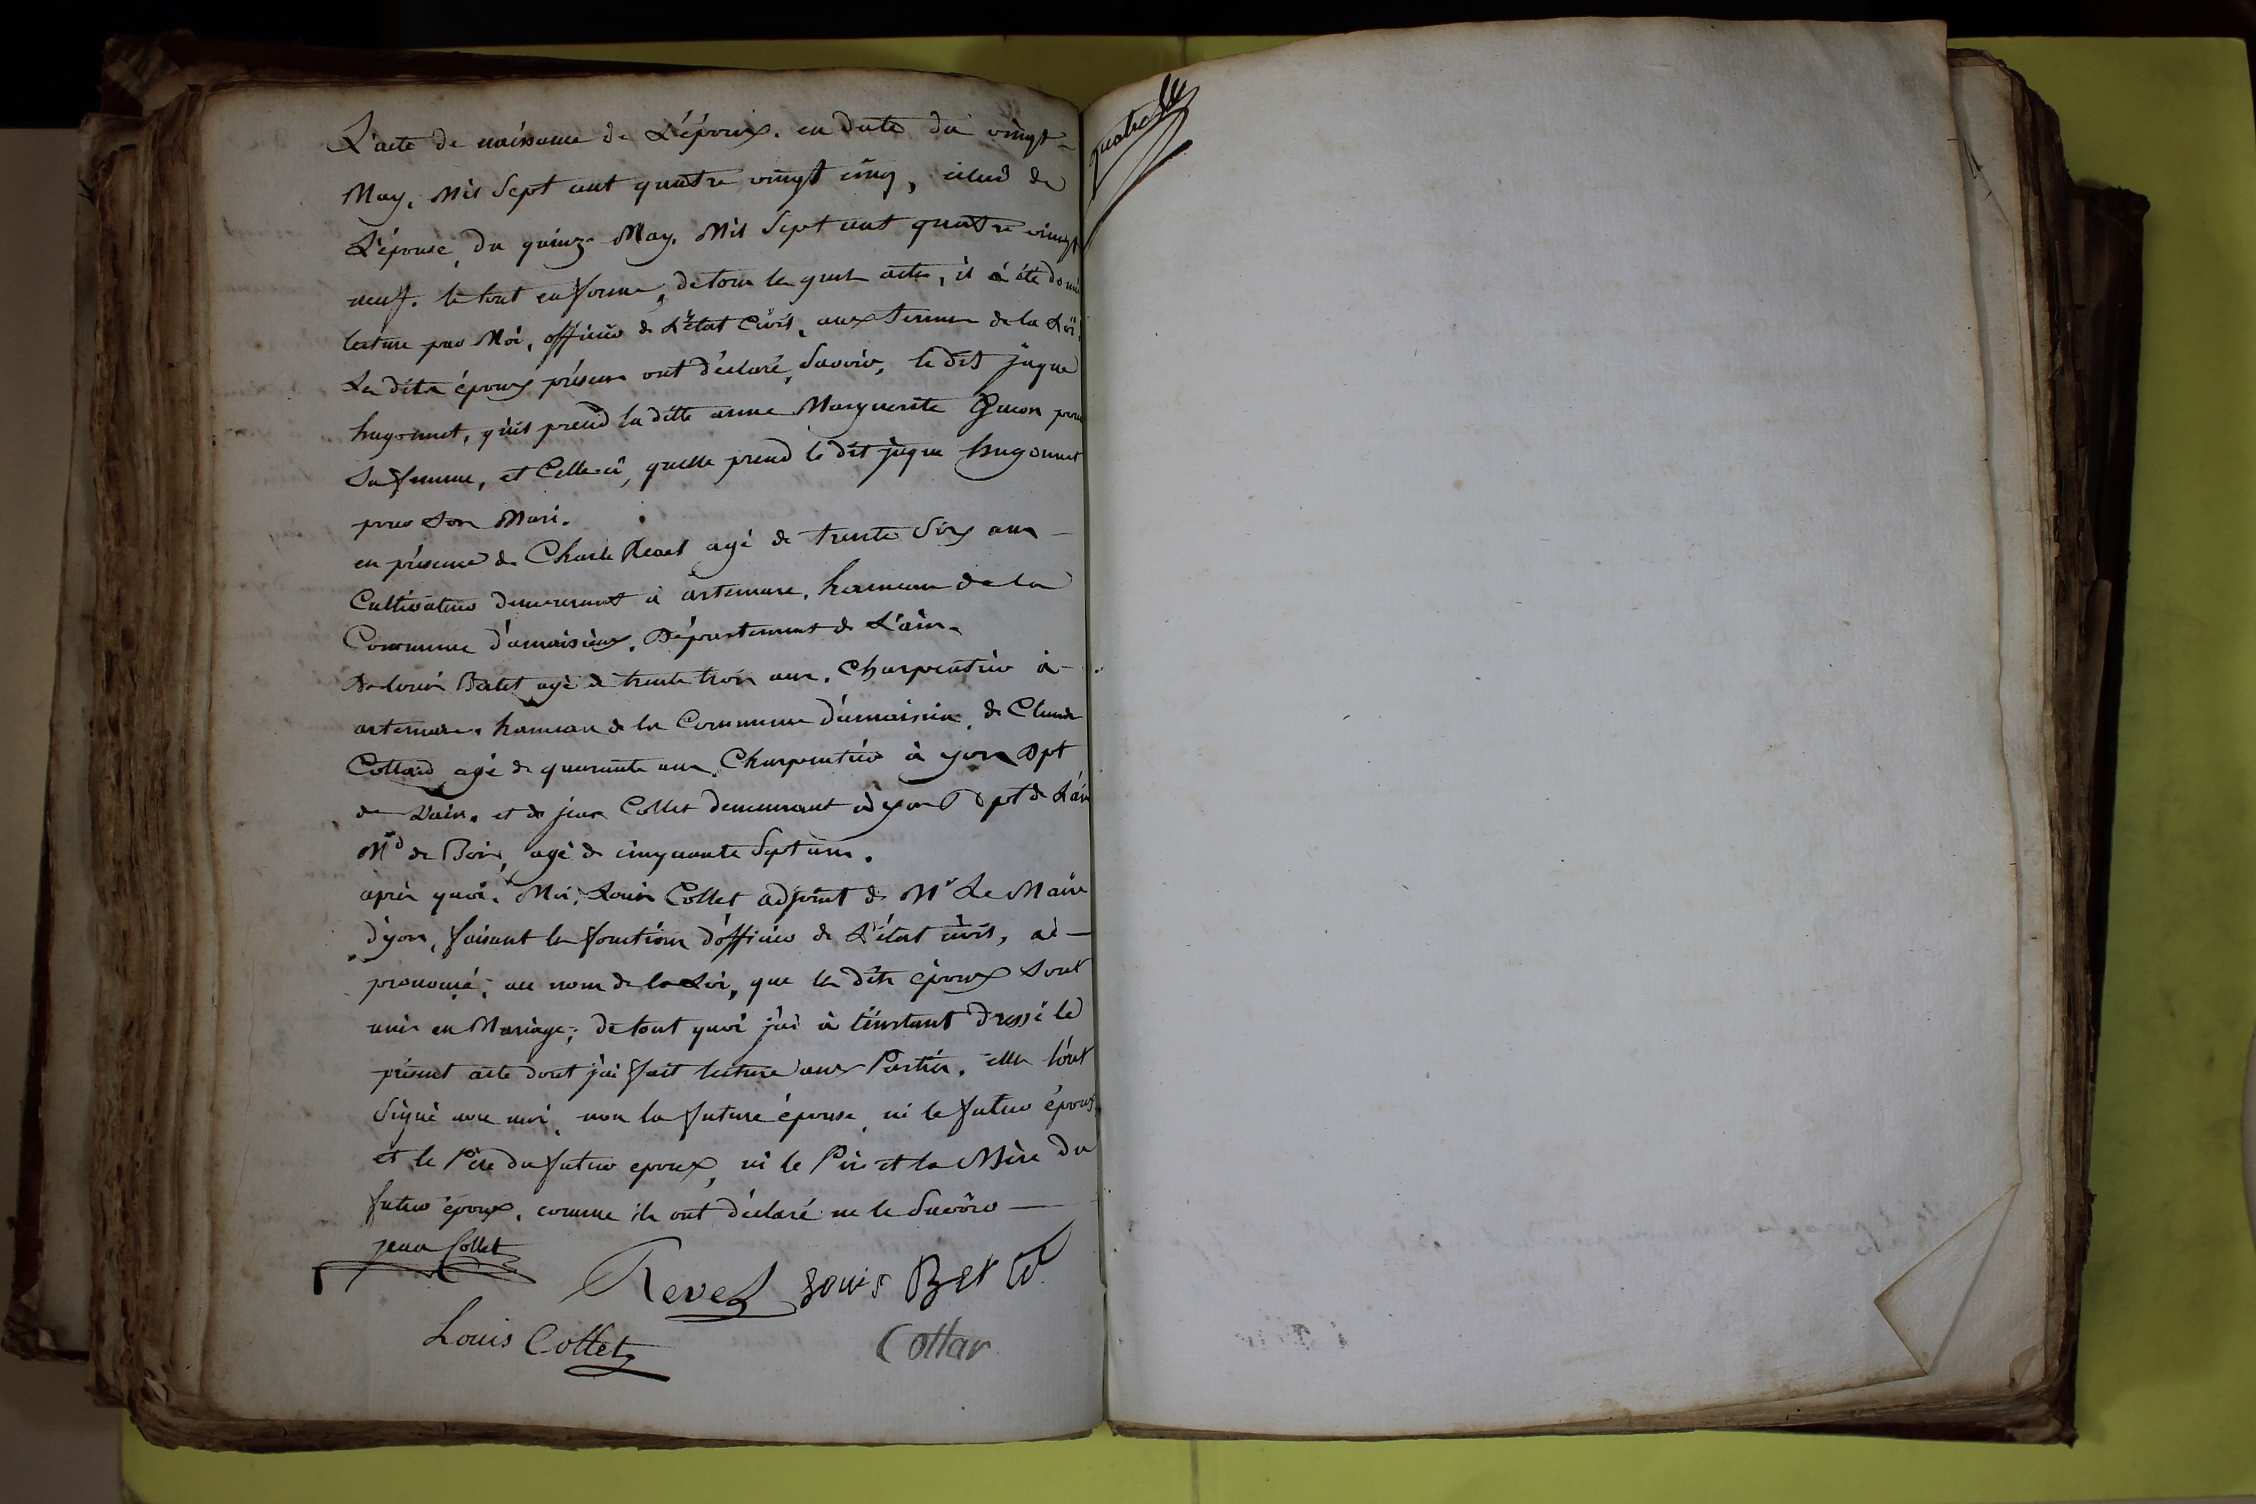 L'acte de naissance de L'époux. en date du vingt-
May, Mil Sept cent quatre vingt cinq, celui de
L'épouse, du quinze May, Mil Sept cent quatre vingt
neuf. le tout en forme, de tous les quels actes, il à été donné
lecture par Moi, officier de L'état Civil, aux termes de la Loi.
Les dits époux présens ont déclaré, Savoir, le dit jaque
hugonnet, qu'il prend la ditte anne Marguerite pour
Sa femme, et Celle-ci, quelle prend le dit jaque hugonnet
pour Son Mari.
en présence de Charle Revel agé de trente Six ans
Cultivateur demeurant à artemare, hameau de la
Commune d'ameisieux, Département de L'ain.
De louis Bertet agé de trente trois ans, Charpentier à
artemare, hameau de la Commune d'ameisieu, de Claude
Collard, agé de quarante ans, Charpentier à yon Dpt
de L'ain. et de jean Collet demeurant à yon Dpt de L'ain
Md de Bois, agé de cinquante Sept ans.
après quoi, Moi, Louis Collet adjoint de Mr Le Maire
d'yon, faisant les fonctions d'officier de L'état civil, ai
prononcé, au nom de la Loi, que les dits époux Sont
unis en Mariage; de tout quoi j'ai à l'instant dressé le
présent acte dont j'ai fait lecture aux Parties, elles l'ont
Signé avec moi, non la future épouse, ni le futur époux,
et le Père du futur epoux, ni le Père et la Mère du
futur époux, comme ils ont déclaré ne le Savoir
jean Collet
Revel Louis
Louis Collet
Collar